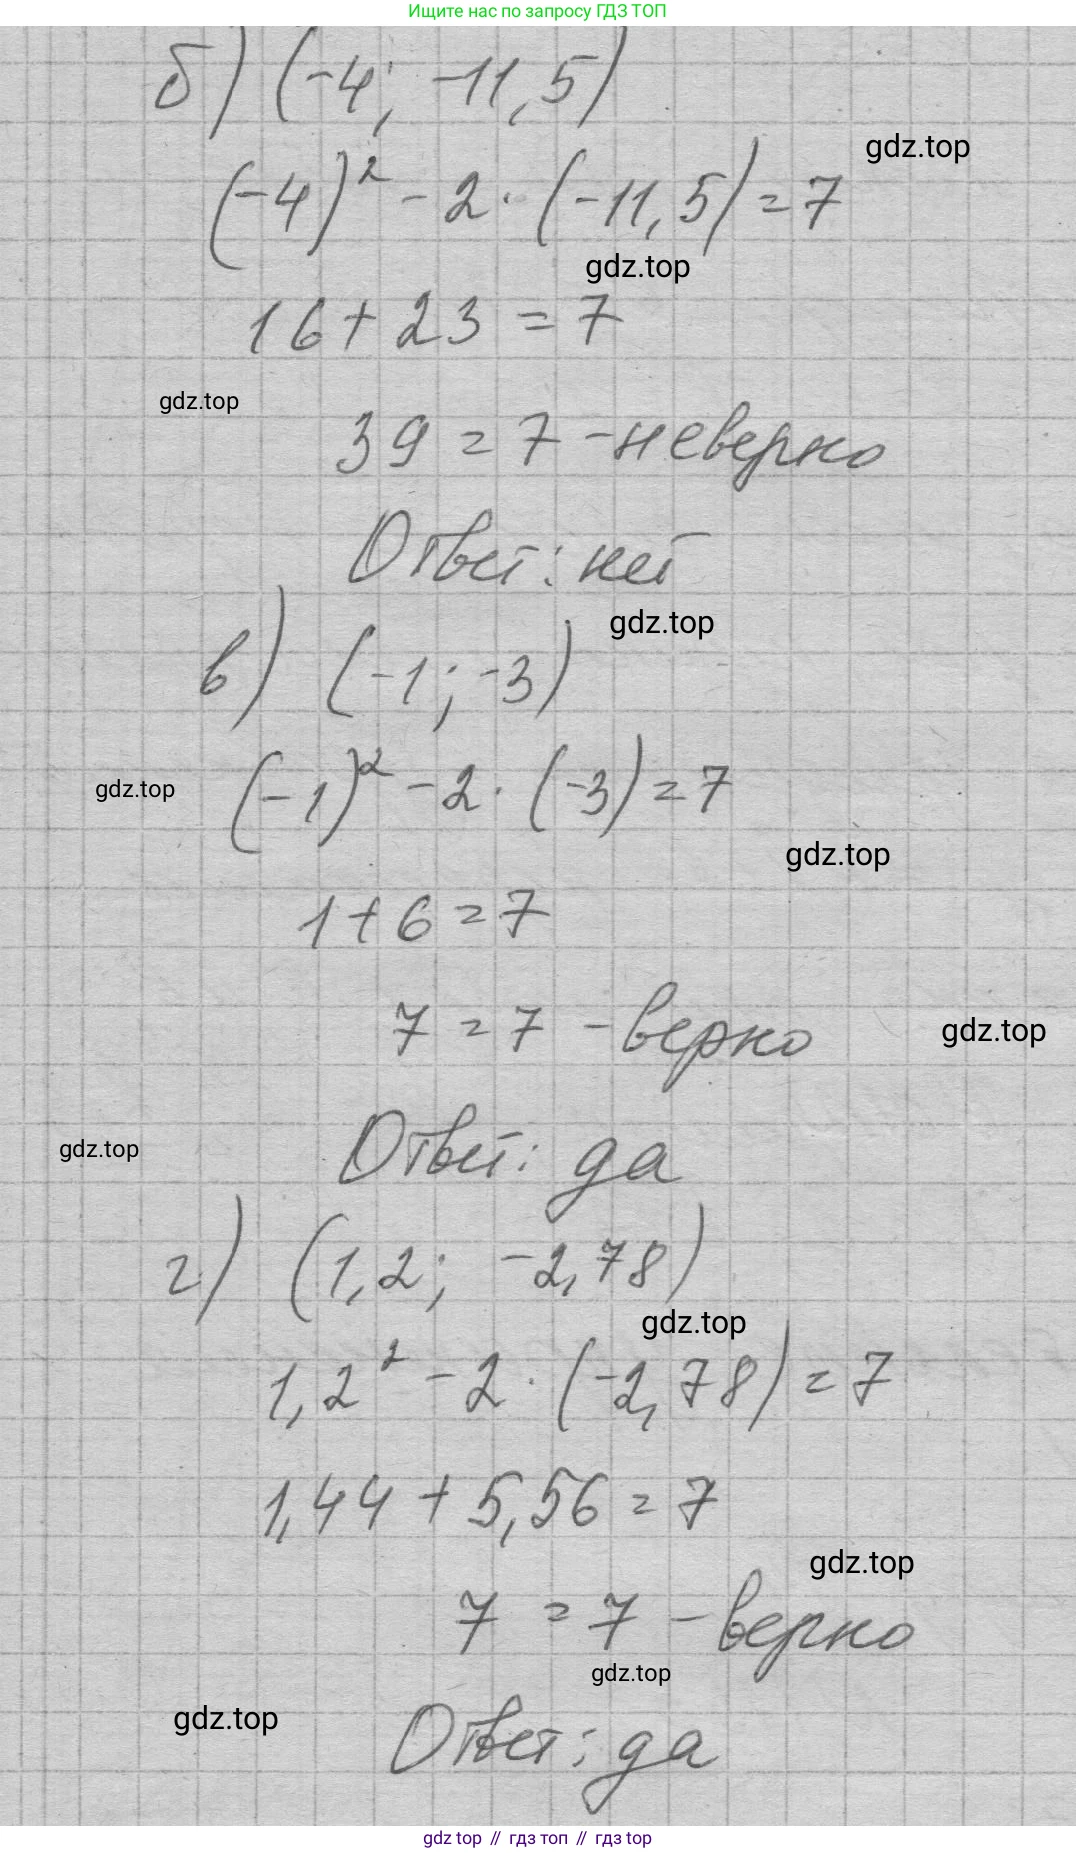 Ищите нас по запросу ГДЗ ТОП
б) (-4; -11,5)
gdz.top
(-4)² - 2 · (-11,5) = 7
gdz.top
16 + 23 = 7
gdz.top
39 = 7 - неверно
Ответ: нет
gdz.top
в) (-1; -3)
gdz.top
(-1)² - 2 · (-3) = 7
gdz.top
1 + 6 = 7
7 = 7 - верно
gdz.top
gdz.top
Ответ: да
г) (1,2; -2,78)
gdz.top
1,2² - 2 · (-2,78) = 7
1,44 + 5,56 = 7
gdz.top
7 = 7 - верно
gdz.top
gdz.top
Ответ: да
gdz top // гдз топ // гдз top